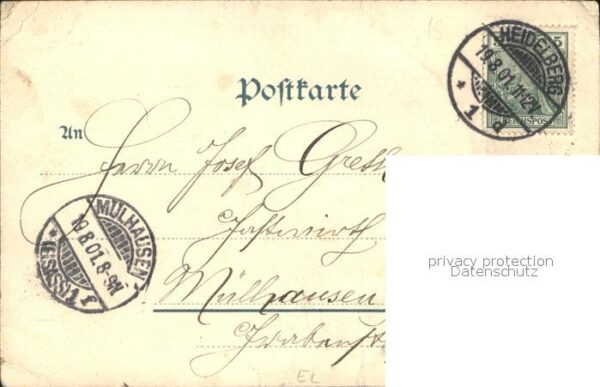 HEIDELBERG
19.8.01.11-12V.
* 1 d
5
REICHSPOST
Postkarte
An
Herrn Josef Greth
Gastwirth
MÜLHAUSEN
19.8.01.8-9N.
* (ELSASS) 1 f
Mülhausen
privacy protection
Datenschutz
Grabenst
EL